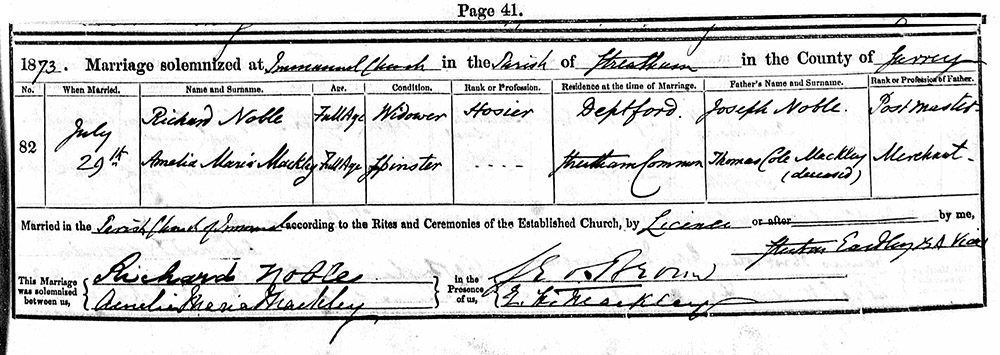 Page 41.
1873. Marriage solemnized at Immanuel Church in the Parish of Streatham in the County of Surrey
No. When Married. Name and Surname. Age. Condition. Rank or Profession. Residence at the time of Marriage. Father's Name and Surname. Rank or Profession of Father.
82 July 29th
Richard Noble Full Age Widower Hosier Deptford. Joseph Noble. Post master
Amelia Maria Mackley Full Age Spinster - - - - Streatham Common Thomas Cole Mackley (deceased) Merchant
Married in the Parish Church of according to the Rites and Ceremonies of the Established Church, by Licence or after by me,
Stenton Eardley B.A Vicar
This Marriage was solemnized between us, Richard Noble
Amelia Maria Mackley
in the Presence of us,
Mackley